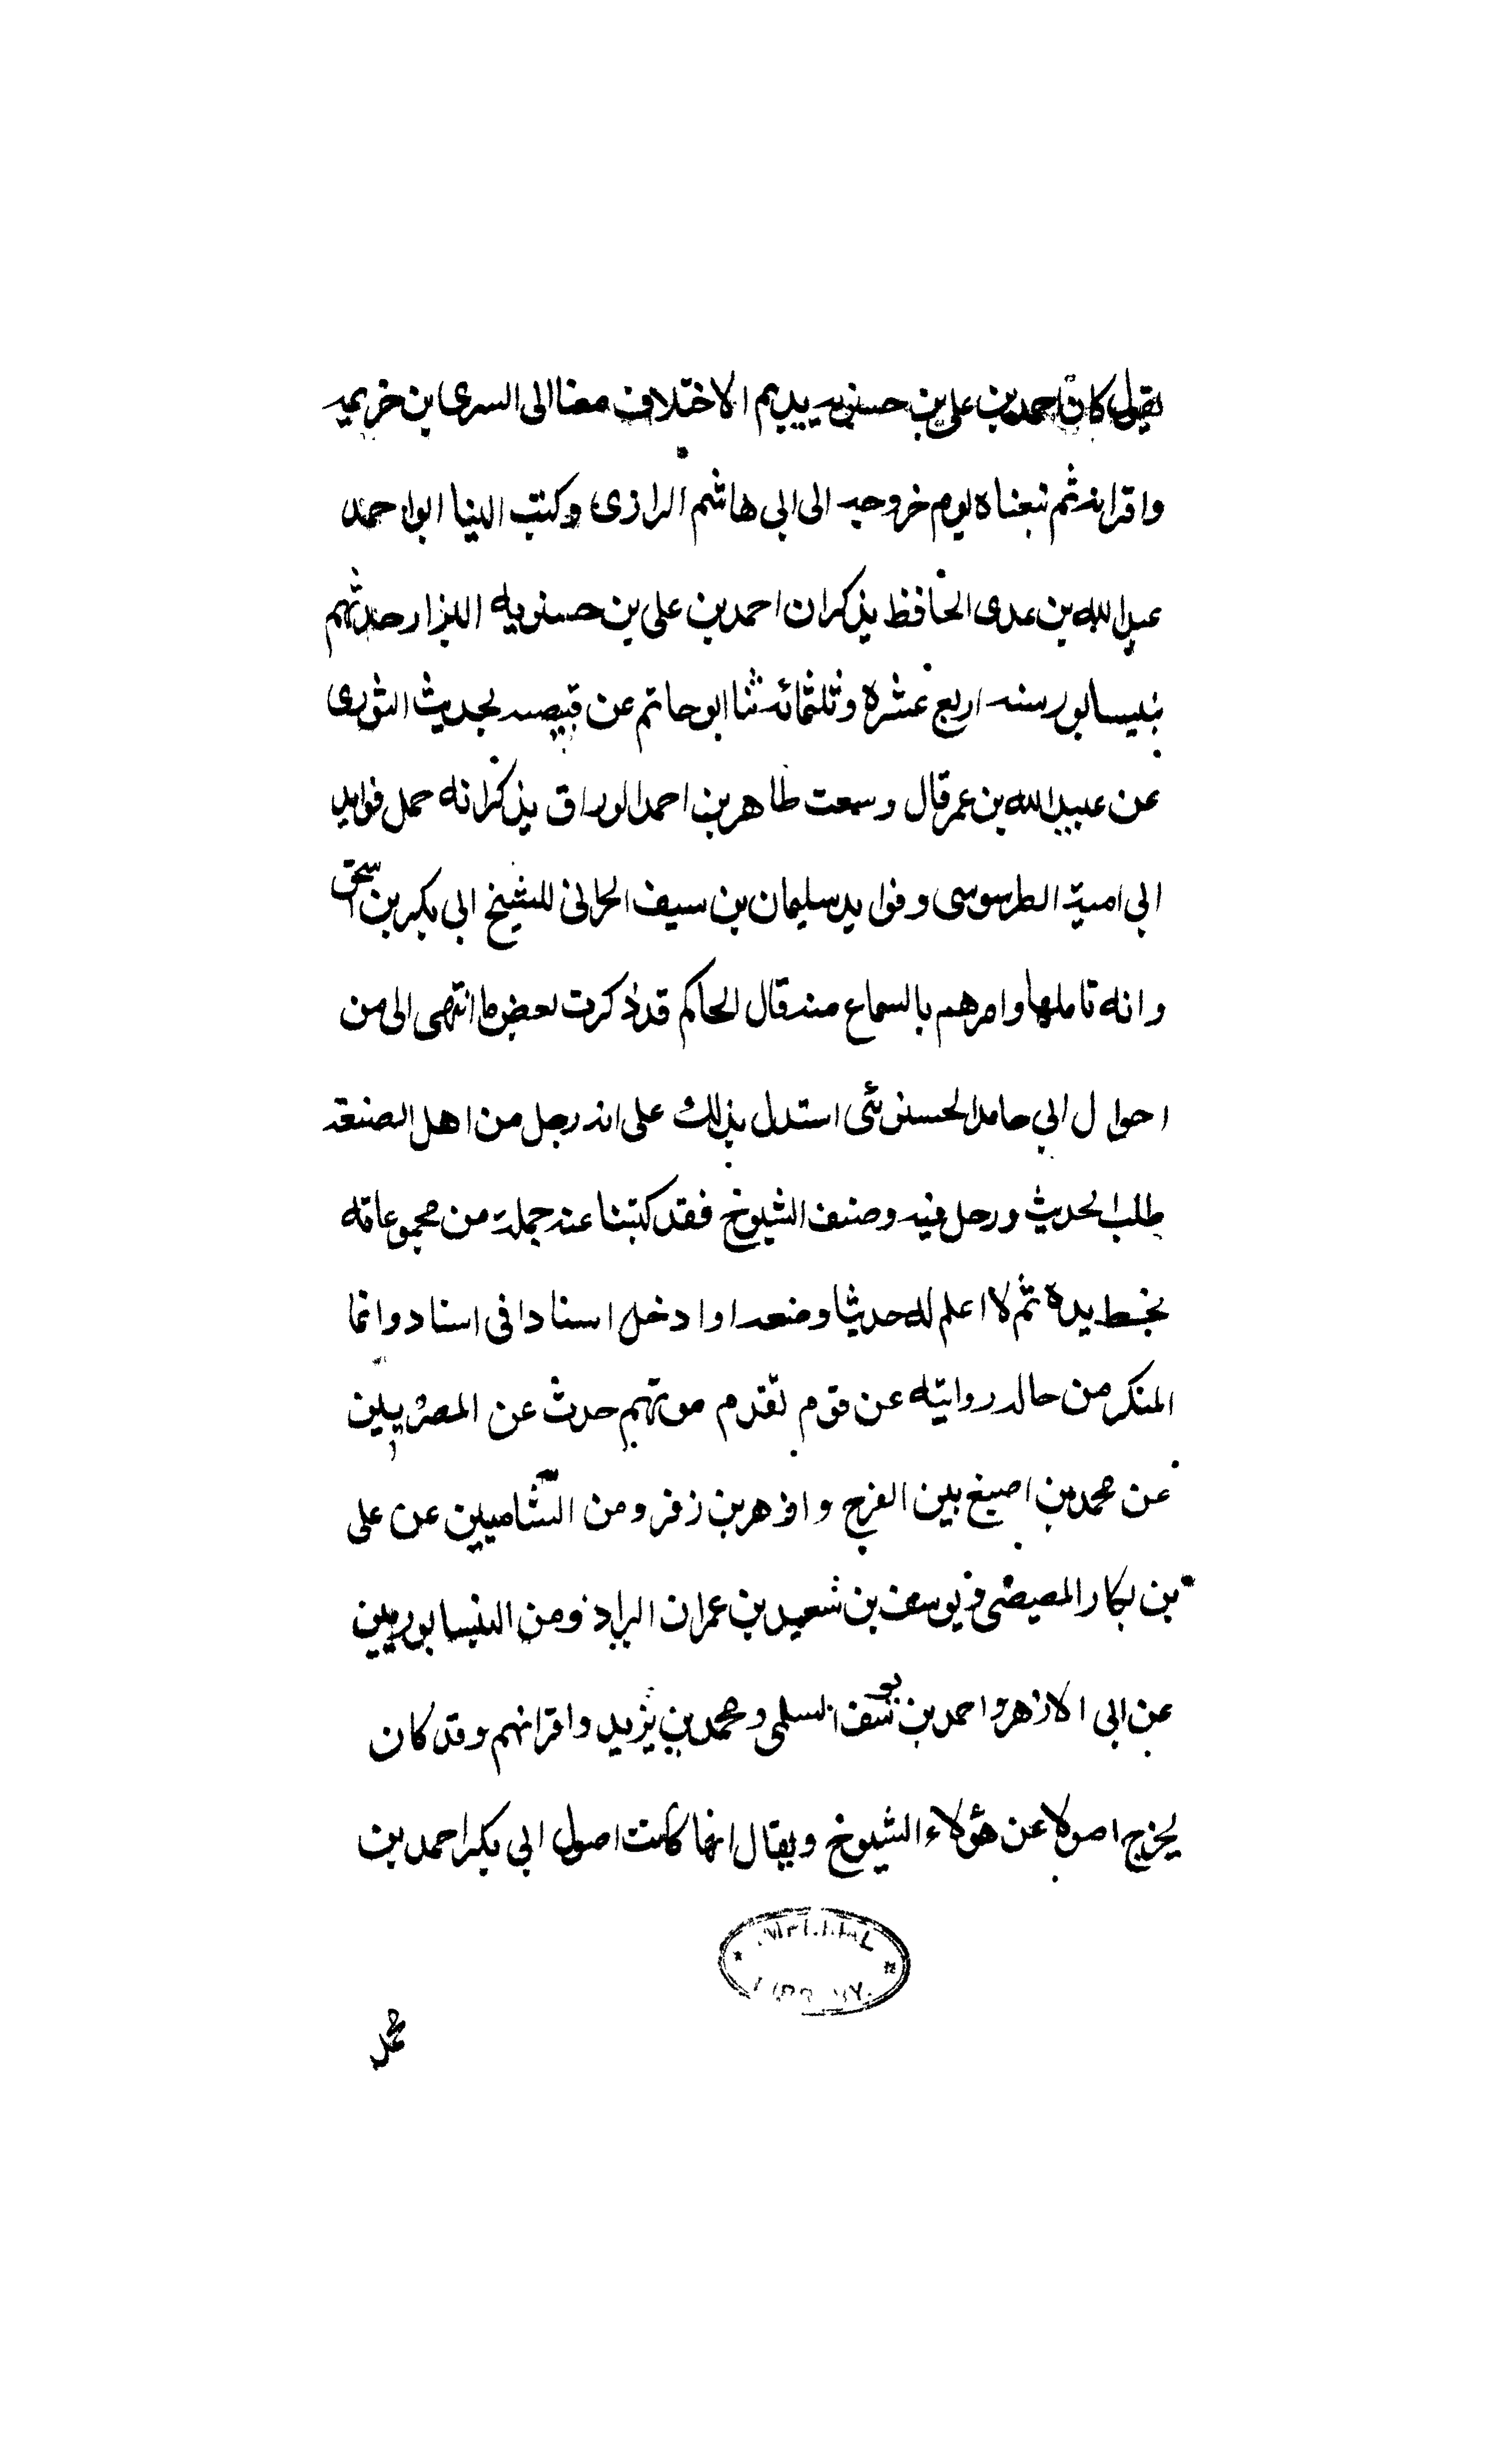 يقول كان احمد بن على بن حسنويه يديم الاختلاف معنا الى السرى بن خزيمه
واقرانه ثم تبعناه يوم خروجه الى ابى هاشم الرازى وكتب الينا ابو احمد
عبد الله بن عدى الحافظ يذكر ان احمد بن على بن حسنويه البزار حدثهم
بنيسابور سنه اربع عشره وثلثمائه ثنا ابو حاتم عن قبيصه بحديث الثورى
عن عبيد الله بن عمر قال وسمعت طاهر بن احمد الوراق يذكر انه حمل فوايد
ابى امية الطرسوسى وفوايد سليمان بن سيف الحرانى للشيخ ابى بكر بن اسحق
وانه تاملها وامرهم بالسماع منه قال الحاكم قد ذكرت بعض ما انتهى الى من
احوال ابى حامد الحسنوئى استدل بذلك على انه رجل من اهل الصنعة
طلب الحديث ورحل فيه وصنف الشيوخ فقد كتبنا عنه جملة من مجموعاته
بخط يده ثم لا اعلم له حديثا وضعه او ادخل اسنادا فى اسناد وانما
المنكر من حاله روايته عن قوم تقدم موتهم حدث عن المصريين
عن محمد بن اصبغ بين الفرج وازهر بن زفر ومن الشاميين عن على
بن بكار المصيصى ويوسف بن شعيد بن عمران البراد ومن النيسابوريين
عن ابى الازهر واحمد بن يوسف السلمى ومحمد بن يزيد واقرانهم وقد كان
يخرج اصولا عن هؤلاء الشيوخ ويقال انها كانت اصول ابى بكر احمد بن
محمد